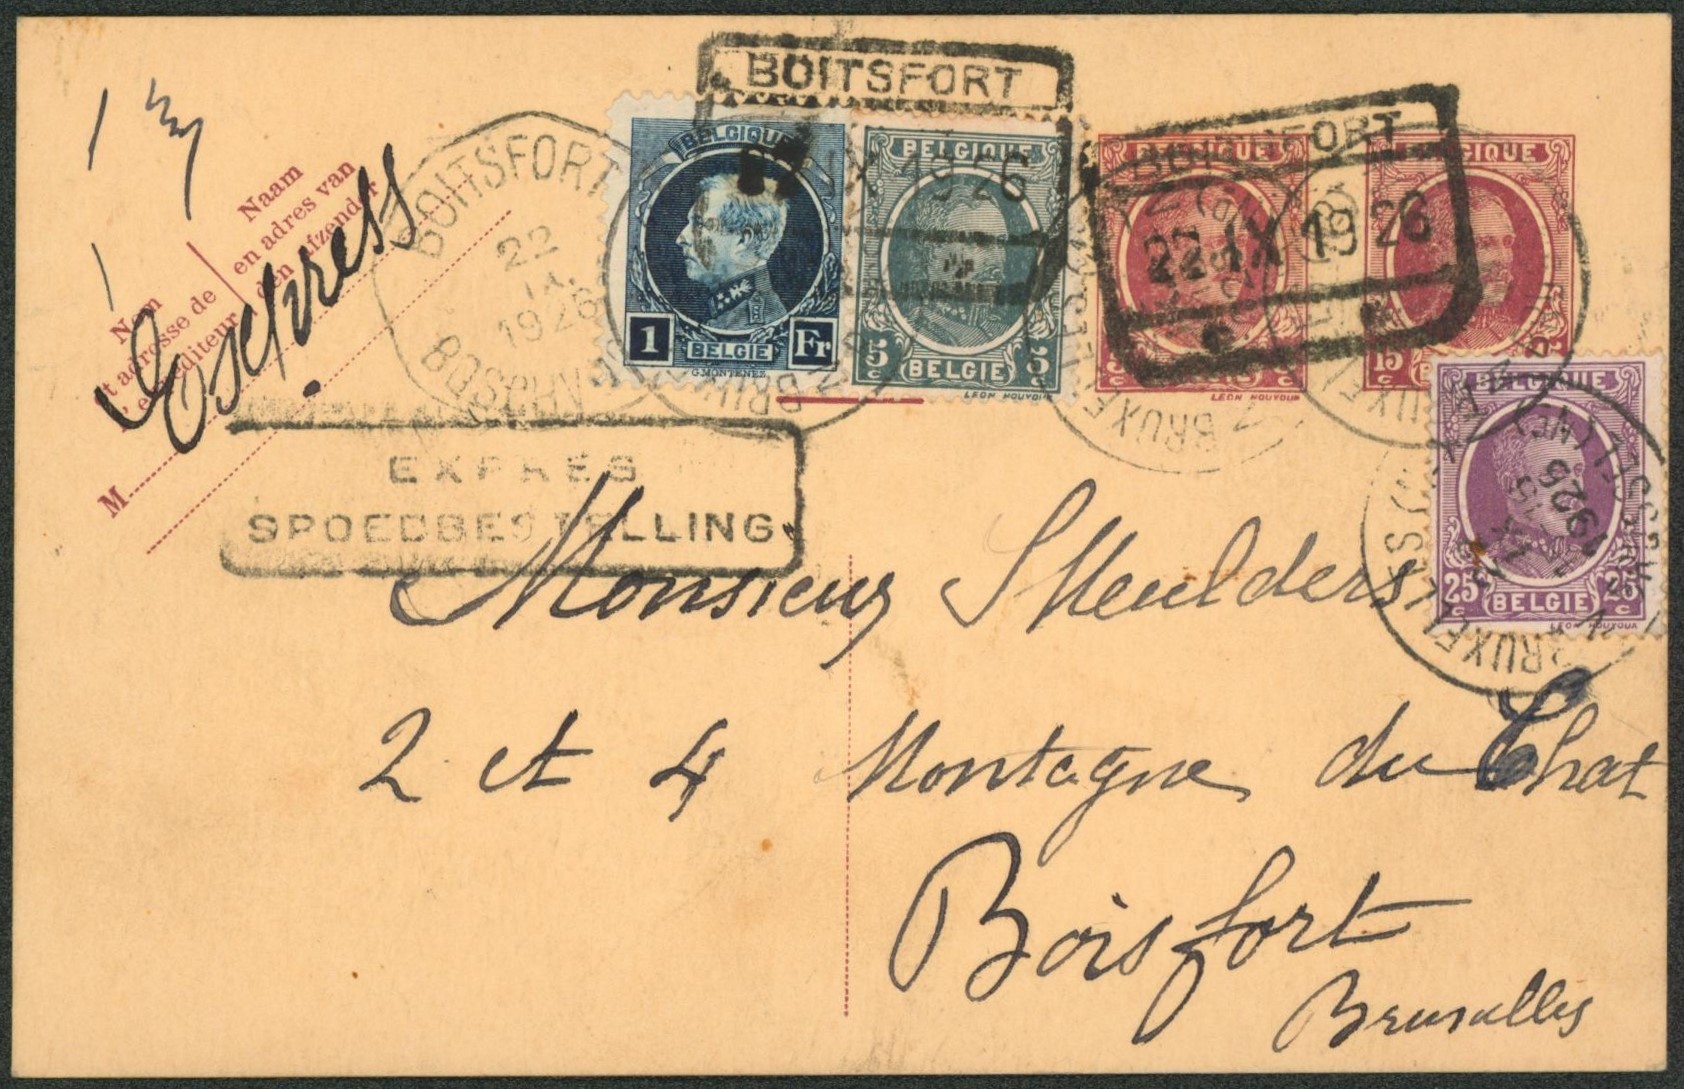 BOITSFORT
22 IX 1926
BOITSFORT
22 IX 1926
BOITSFORT
22
IX
1926
BOSCHV
Naam
en adres van
den afzender
Nom
et adresse de
l'expéditeur
M
Express
BELGIQUE
1 Fr
BELGIE
G. MONTENEZ
BELGIQUE
5 c 5 c
BELGIE
LEON HOUYOUX
BELGIQUE
LEON HOUYOUX
BELGIQUE
15 c
BELGIQUE
25 c 25 c
BELGIE
LEON HOUYOUX
BRUXELLES
BRUSSEL
EXPRÈS
SPOEDBESTELLING
Monsieur SMeulders
2 et 4 Montagne du Chat
Boisfort
Bruxelles